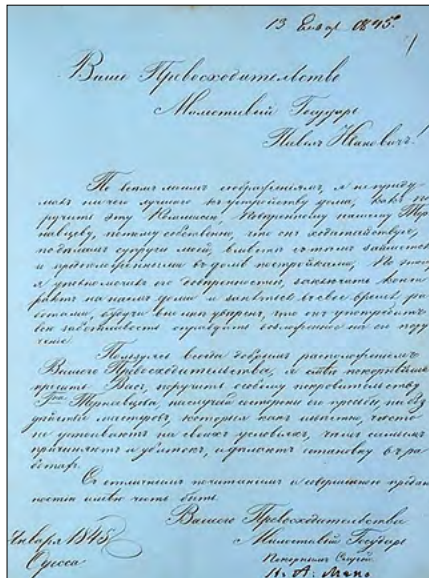 13 Января 1845.
Ваше Превосходительство
Милостивый Государь
Павелъ Ивановичъ!
По всемъ моимъ соображеніямъ, я не приду-
малъ ничего лучшаго къ устройству дома, какъ по
ручить эту Коммисію, Повѣренному нашему Тер
навцову, потому собственно, что онъ ходатайствуе
по дѣламъ супруги моей, вмѣстѣ съ тѣмъ займется
и предположенными въ домѣ постройками, По этому
я уполномочилъ его довѣренностью, заключить конт
рактъ на наемъ дома и заняться во все время ра
ботами, будучи вполнѣ увѣренъ, что онъ употребитъ
всю заботливость оправдать возложенное на его пору
ченіе
Пользуясь всегда добрымъ расположеніемъ
Вашего Превосходительства, я покорнѣйше
просить Васъ, поручить особому покровительству
Гна Тернавцова на случай его просьбы, на
мастеровъ, которыя какъ извѣстно, часто
не успеваютъ на своихъ условіяхъ, чемъ самымъ
причиняютъ и убытокъ, и дѣлаютъ остановку въ ра
ботахъ.
Съ отличнымъ почтеніемъ и совершенною предан
ностью имѣю честь быть
Вашего Превосходительства
Милостивый Государь
Покорнымъ Слугою
Января 1845
Одесса